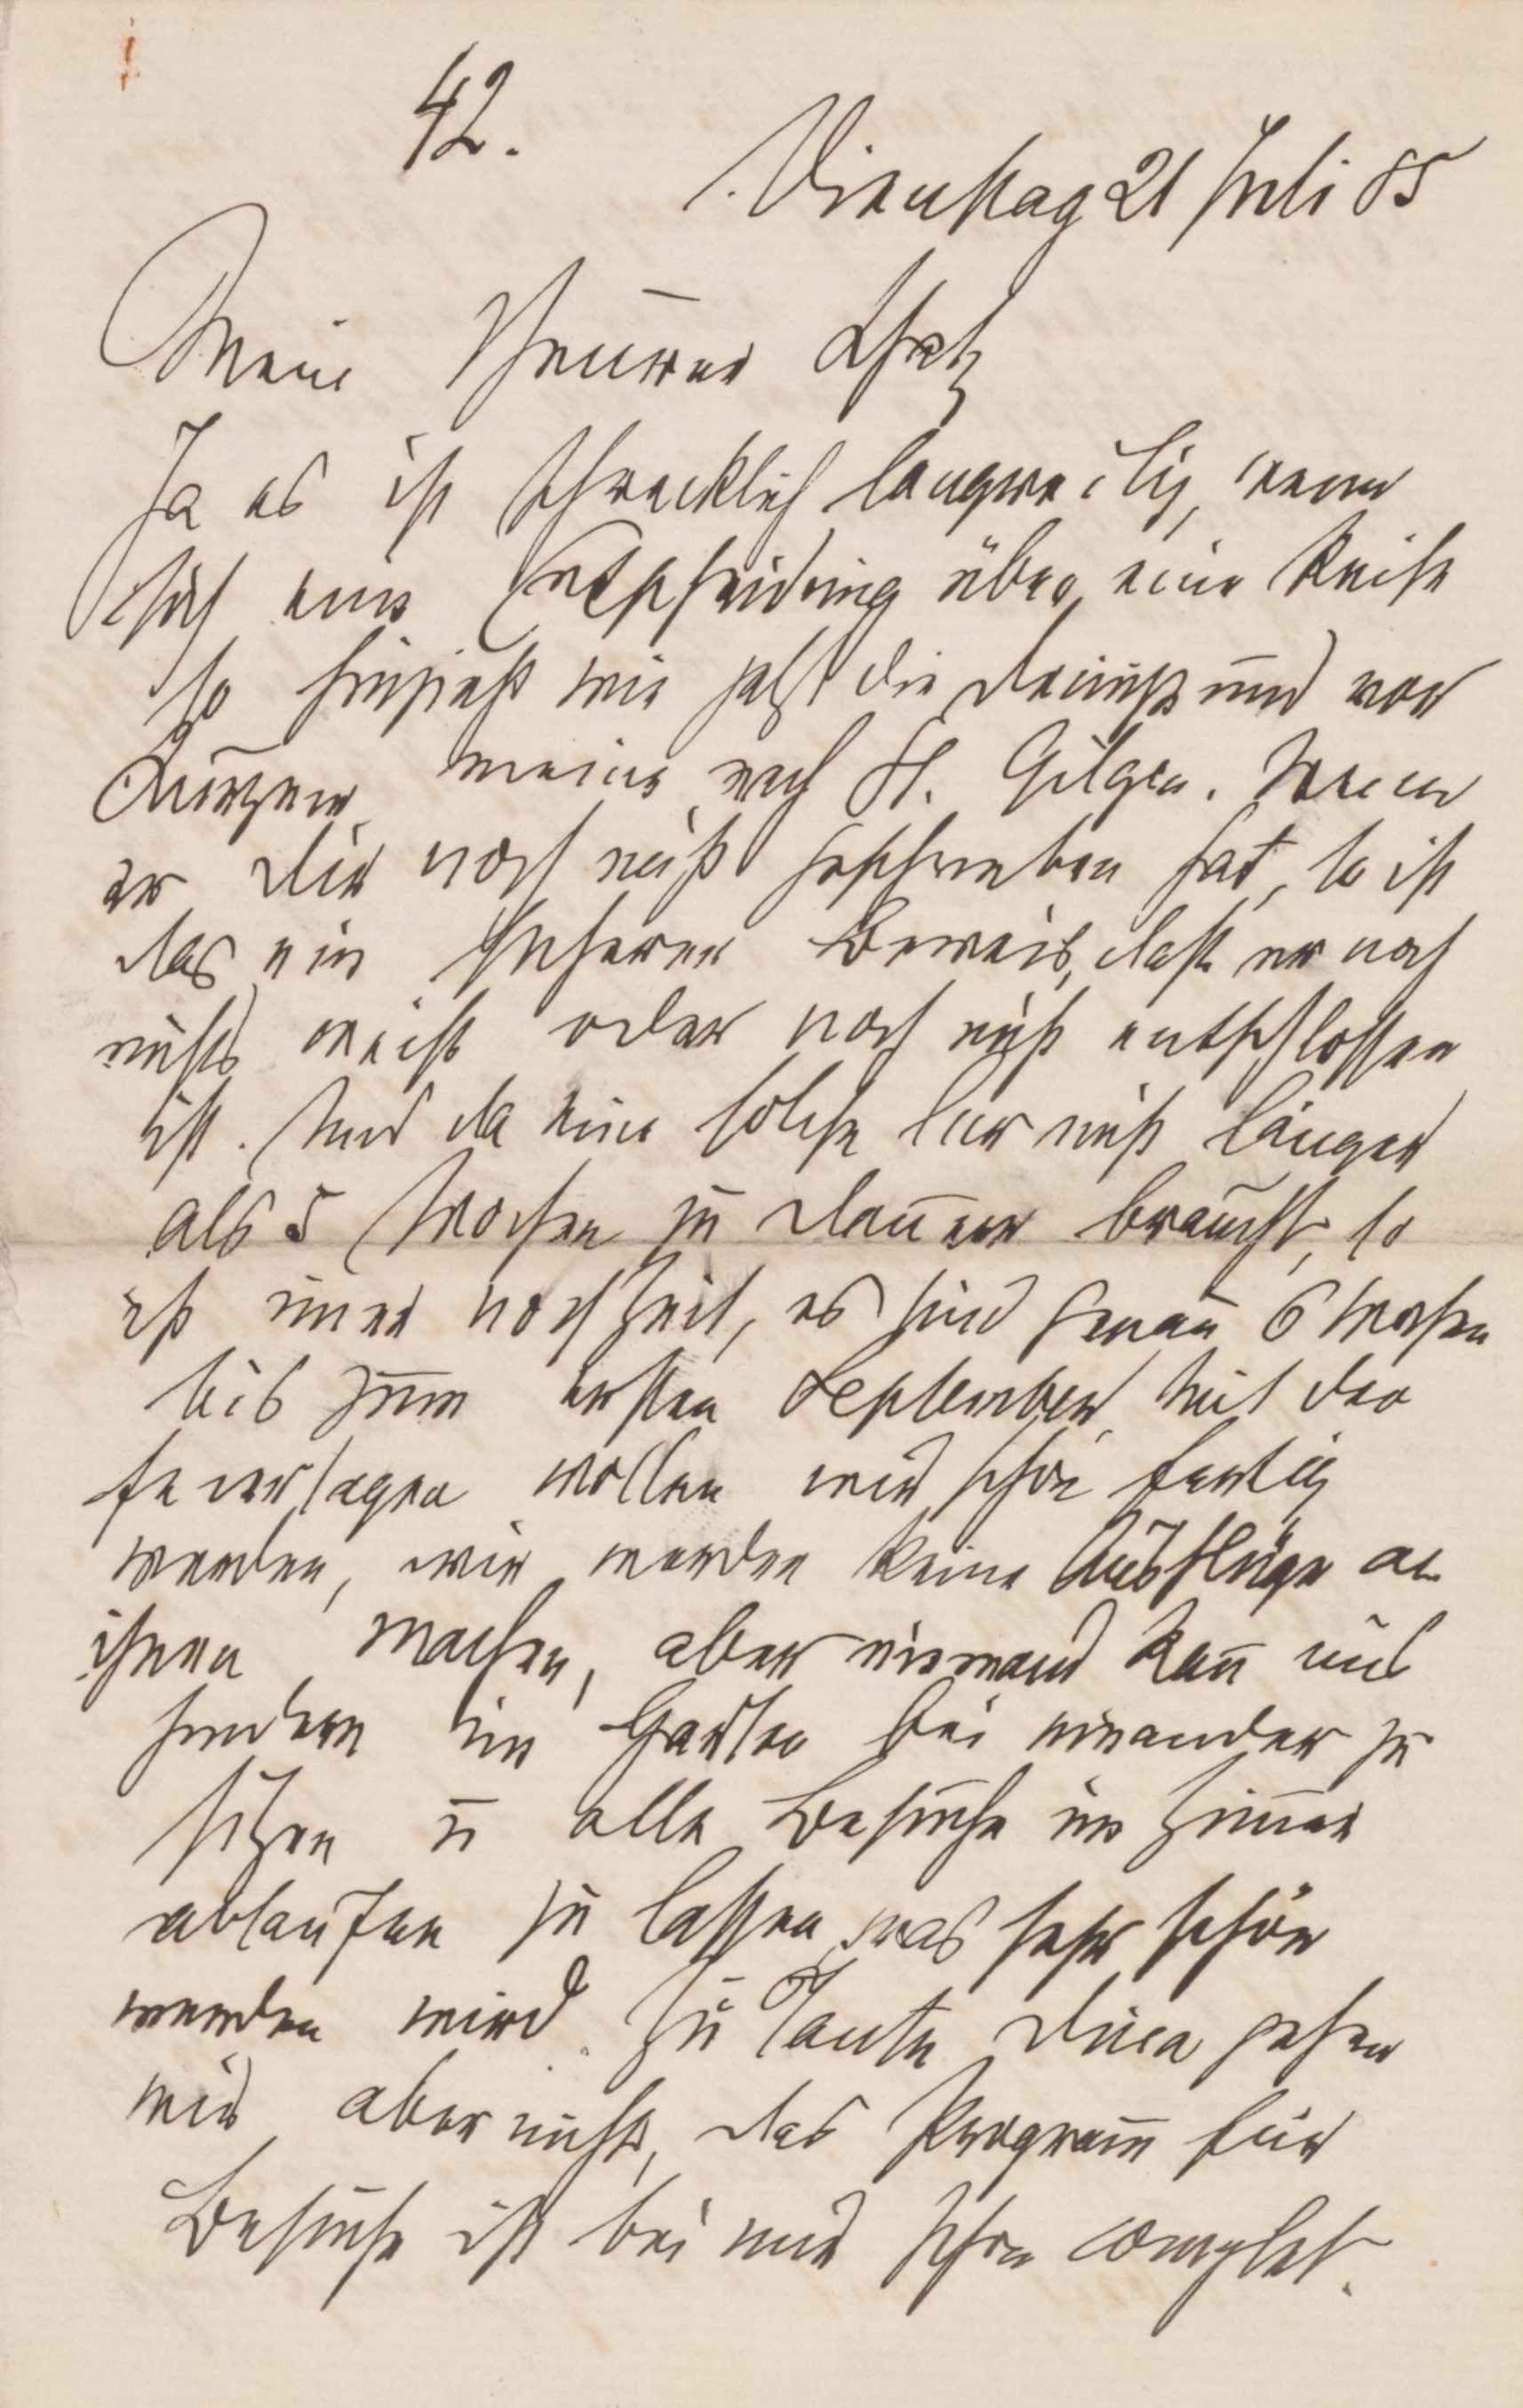 42.
Dienstag 21 Juli 85
Mein theurer Schatz
Ja es ist schrecklich langweilig, wenn
sich eine Entscheidung über eine Reise
so hinzieht wie jetzt die Deinige und vor
Kurzem meine nach St. Gilgen. Wenn
er Dir noch nicht geschrieben hat, so ist
das ein sicherer Beweis, daß er noch
nichts weiß oder noch nicht entschlossen
ist. Und da eine solche Cur nicht länger
als 5 Wochen zu dauern braucht, so
ist immer noch Zeit, es sind genau 6 Wochen
bis zum ersten September. Mit den
Feiertagen wollen wir schon fertig
werden, wir werden keine Ausflüge an
ihnen machen, aber niemand kan̄ uns
hindern im Garten bei einander zu
sitzen u alle Besuche im Zim̄er
ablaufen zu lassen, was sehr schön
werden wird. Zu Tante gehen
wir aber nicht, das Program̄ für
Besuche ist bei mir schon complet.